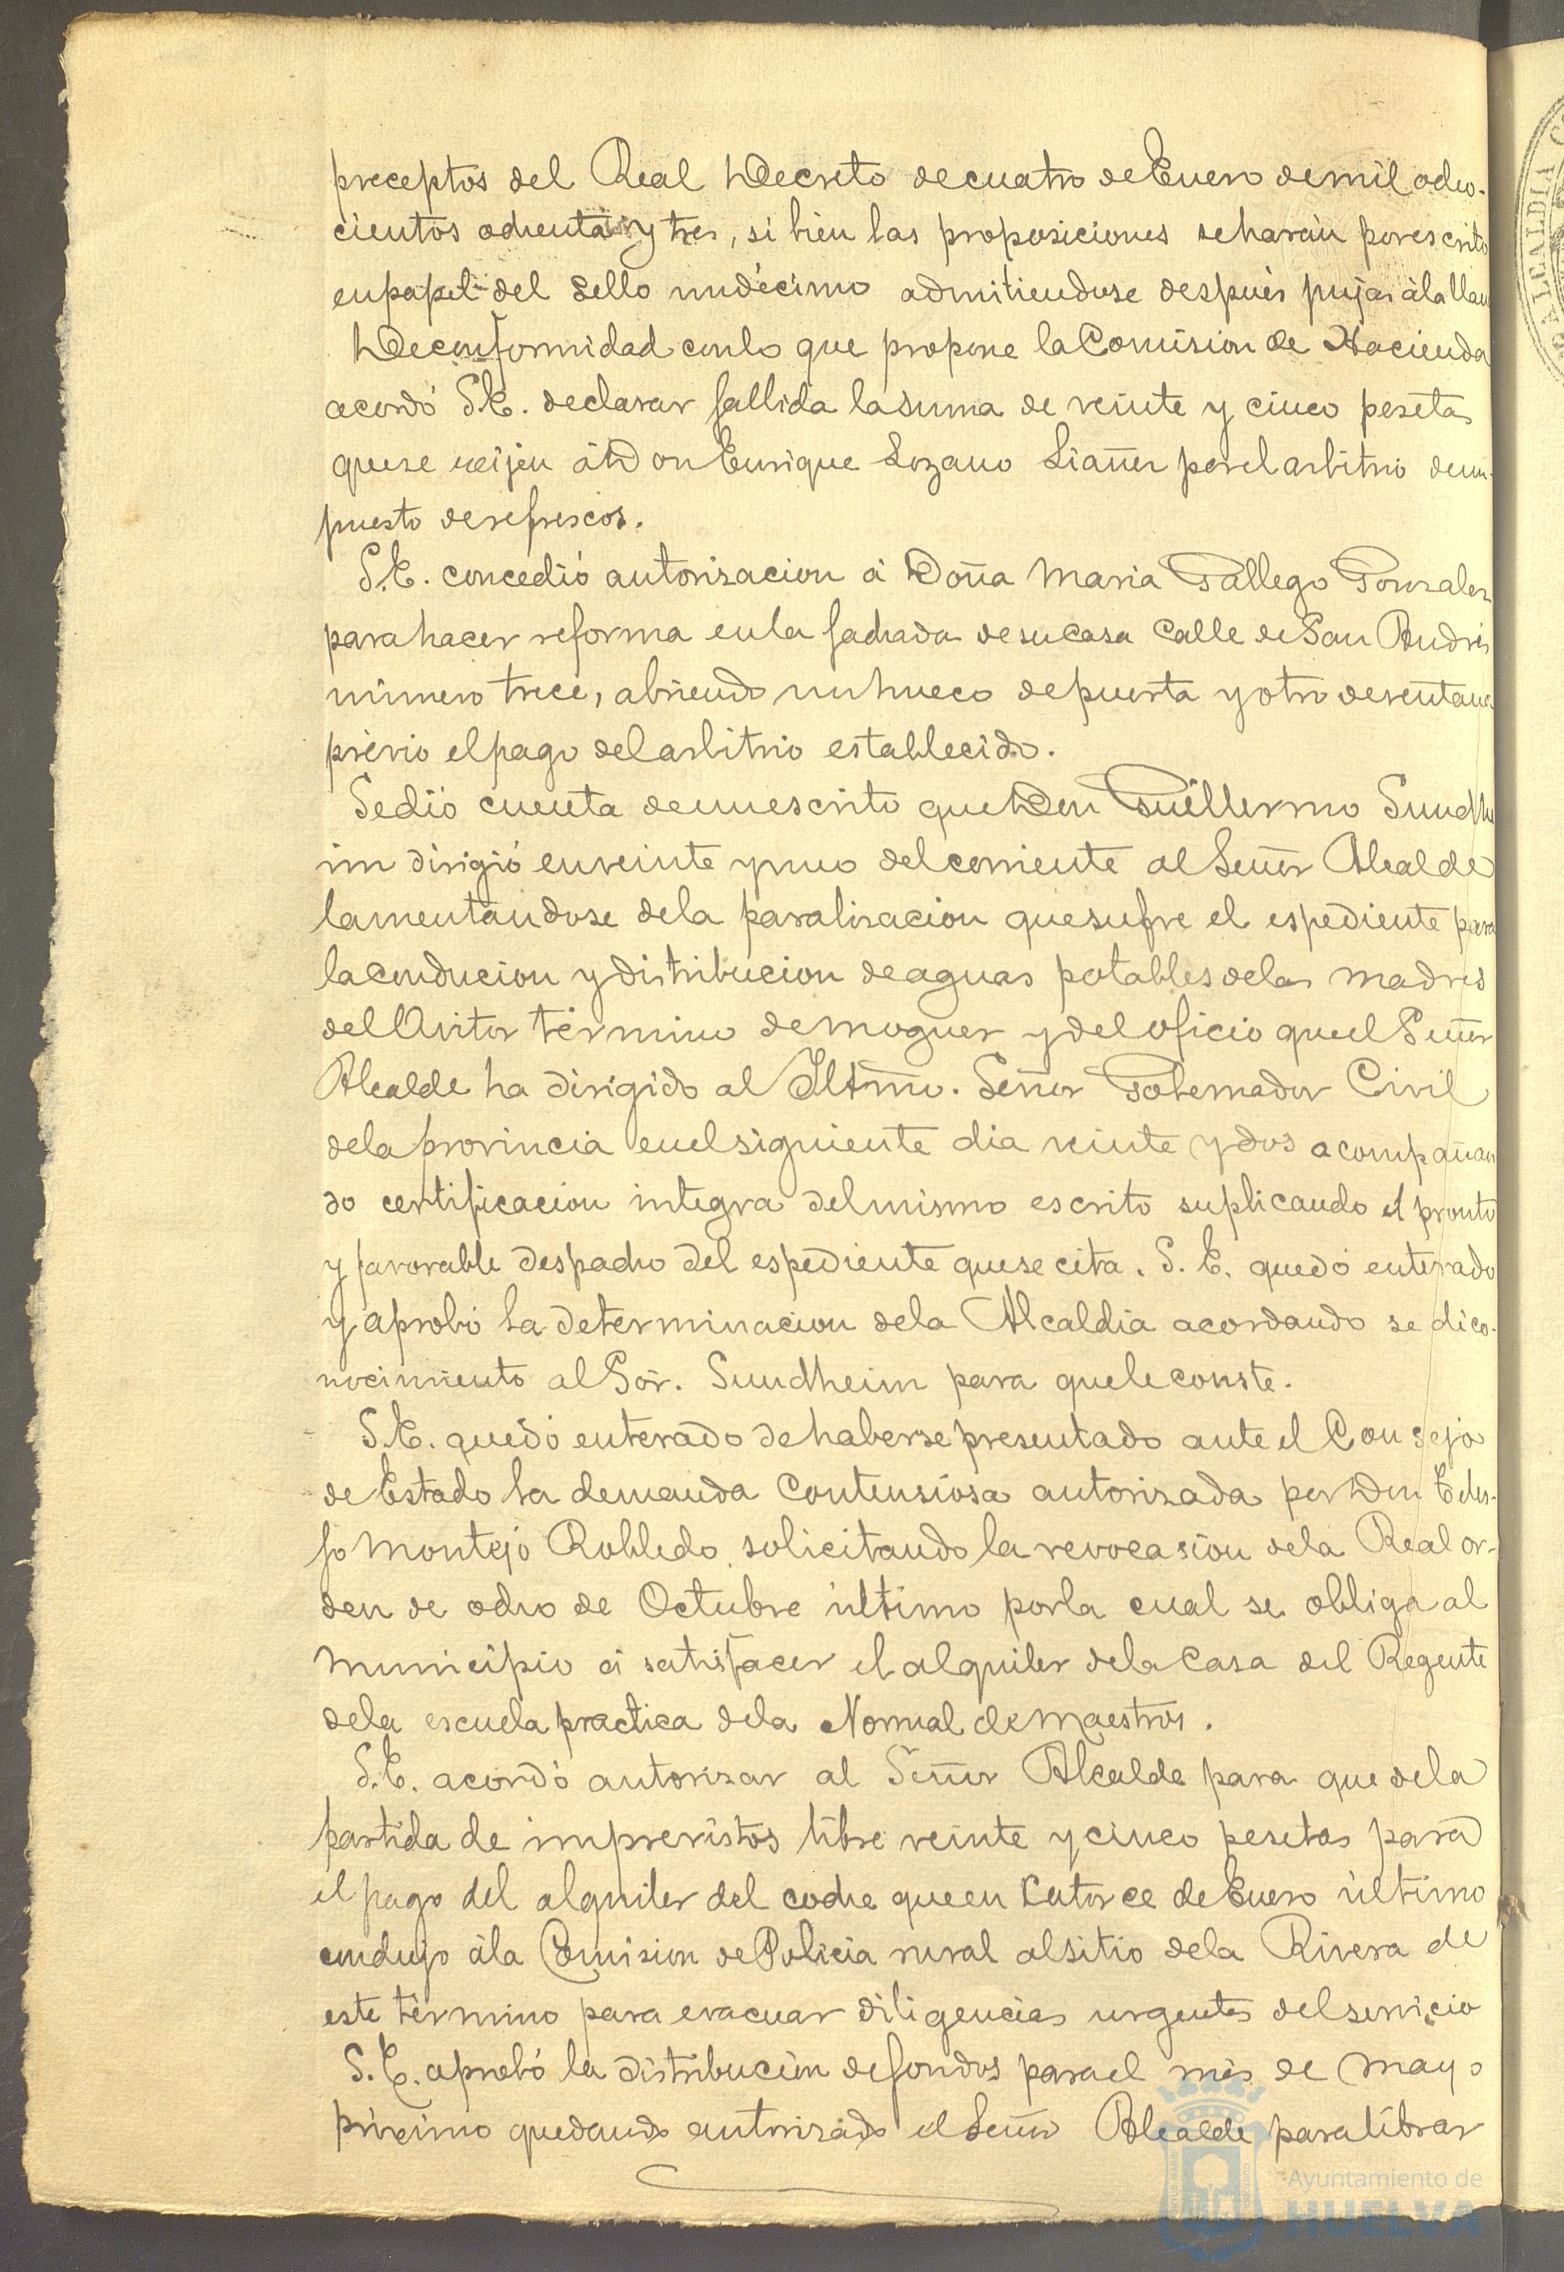 preceptos del Real Decreto de cuatro de Enero de mil ocho-
cientos ochenta y tres, si bien las proposiciones se harán por escrito
en papel del sello undécimo admitiendose después pujas á la llan
De conformidad con lo que propone la Comision de Hacienda
acordó S.E. declarar fallida la suma de veinte y cinco pesetas
que se exijen á Don Enrique Lozano Liañes por el arbitrio de un
puesto de refrescos.
S.E. concedió autorizacion á Doña Maria Gallego Gonzalez
para hacer reforma en la fachada de su casa Calle de San Andrés
número trece, abriendo un hueco de puerta y otro de ventana
prévio el pago del arbitrio establecido.
Se dió cuenta de un escrito que Don Guillermo Sundhe
im dirigió en veinte y uno del corriente al Señor Alcalde
lamentandose de la paralizacion que sufre el espediente para
la conducion y distribucion de aguas potables de las madres
del Avitor término de Moguer y del oficio que el Señor
Alcalde ha dirigido al Iltmo. Señor Gobernador Civil
de la provincia en el siguiente dia veinte y dos acompañan
do certificacion integra del mismo escrito suplicando el pronto
y favorable despacho del espediente que se cita. S. E. quedó enterado
y aprobó la determinacion de la Alcaldia acordando se dé co-
nocimiento al Sor. Sundheim para que le conste.
S.E. quedó enterado de haberse presentado ante el Consejo
de Estado la demanda Contensiosa autorizada por Don Teles-
fo Montejo Robledo, solicitando la revocasion de la Real or-
den de ocho de Octubre último por la cual se obliga al
Municipio á satisfacer el alquiler de la Casa del Regente
de la escuela practica de la Normal de Maestros.
S.E. acordó autorizar al Señor Alcalde para que de la
partida de imprevistos libre veinte y cinco pesetas para
el pago del alquiler del coche que en Catorce de Enero último
condujo á la Comision de Policia rural al sitio de la Rivera de
este término para evacuar diligencias urgentes del servicio
S.E. aprobó la distribución de fondos para el mes de Mayo
próximo quedando autorizado el Señor Alcalde para librar
Ayuntamiento de
HUELVA